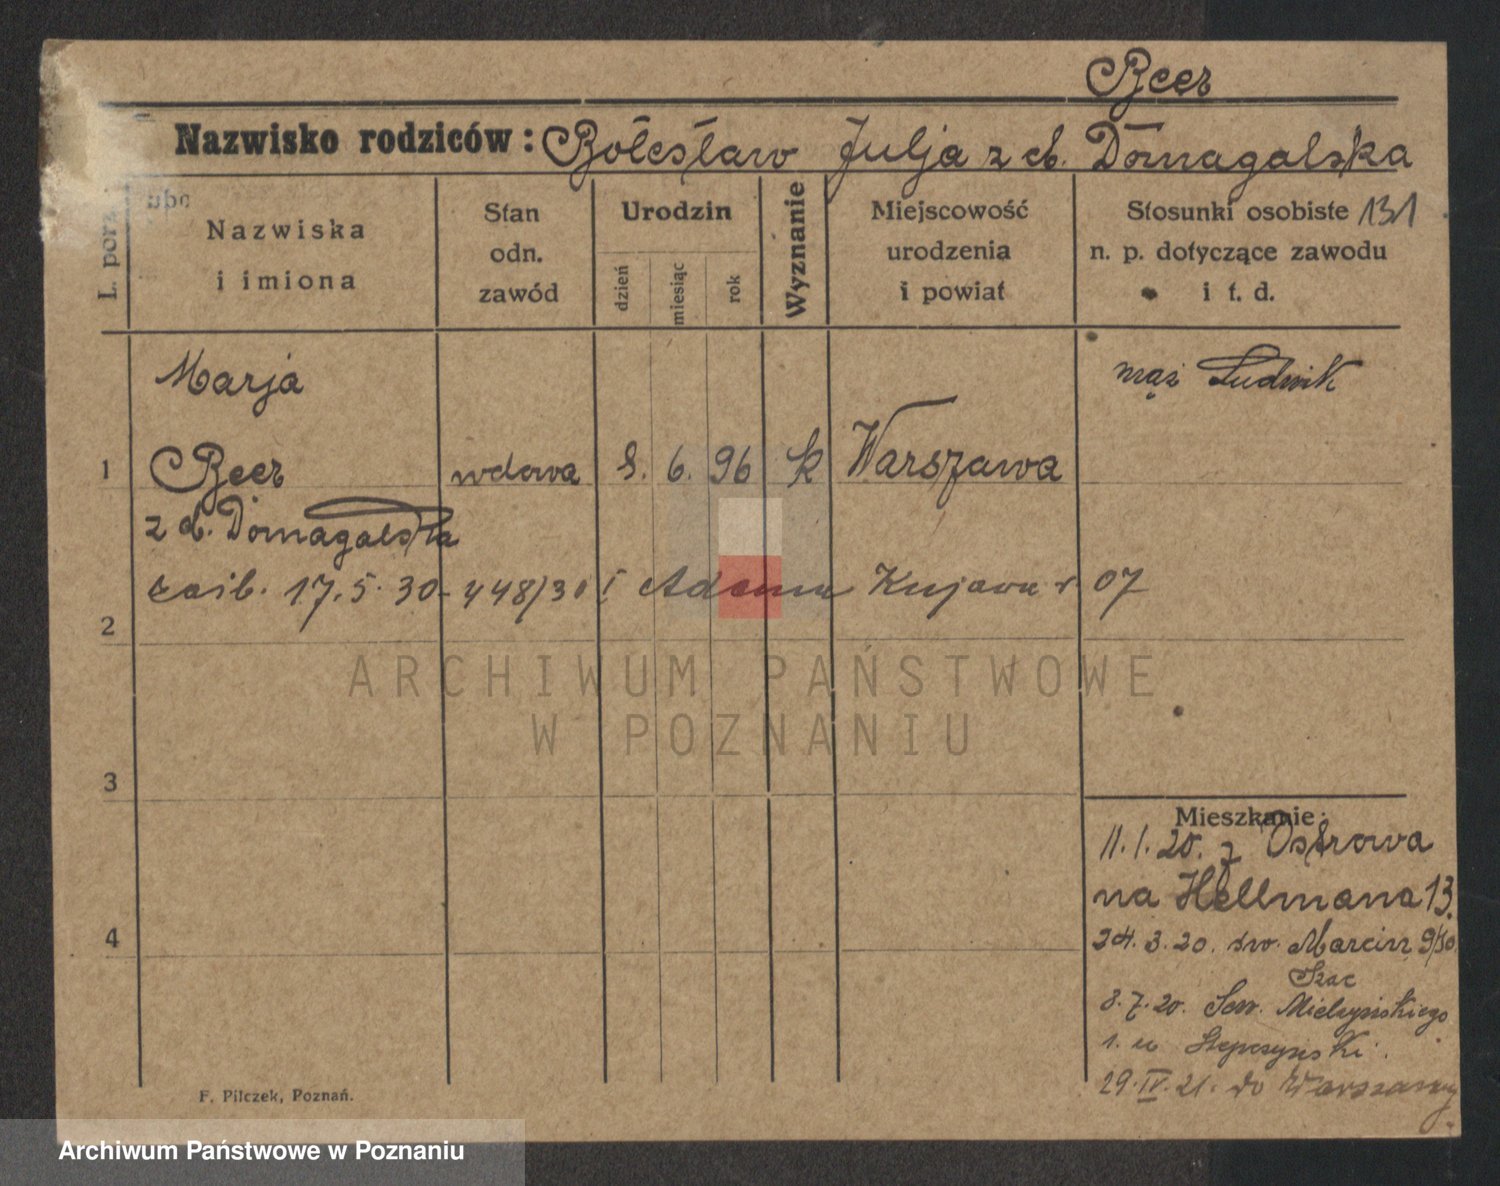 Beer
Nazwisko rodziców: Bolesław Julja z d. Domagalska
L. porz.
Nazwiska
i imiona
Stan
odn.
zawód
Urodzin
dzień
miesiąc
rok
Wyznanie
Miejscowość
urodzenia
i powiat
Stosunki osobiste 131
n. p. dotyczące zawodu
i t. d.
Marja
mąż Ludwik
1 Beer wdowa 8. 6. 96 k Warszawa
z d. Domagalska
zaśb. 17.5.30 - 448/30 Adama Kujawa r 07
2
3
4
Mieszkanie:
11.1.20. z Ostrowa
na Hellmana 13.
24.3.20. św. Marcin 9/10
3.7.20. Sew. Mielżyńskiego
1. u
29.IV.21. do Warszawy
F. Pilczek, Poznań.
ARCHIWUM PAŃSTWOWE
W POZNANIU
Archiwum Państwowe w Poznaniu